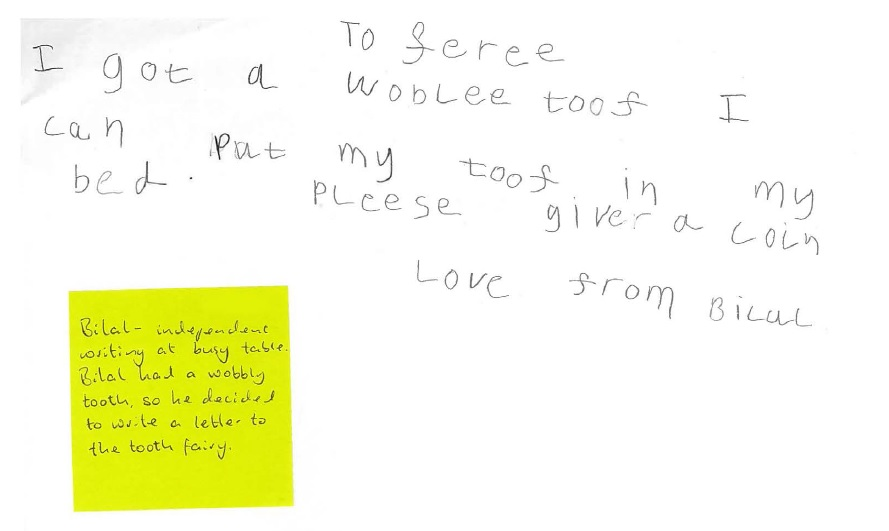 To feree
I got a wobLee toof I
can put my toof in my
bed. PLeese giver a coin
Love from BiLaL
Bilal - independent
writing at busy table.
Bilal had a wobbly
tooth, so he decided
to write a letter to
the tooth fairy.